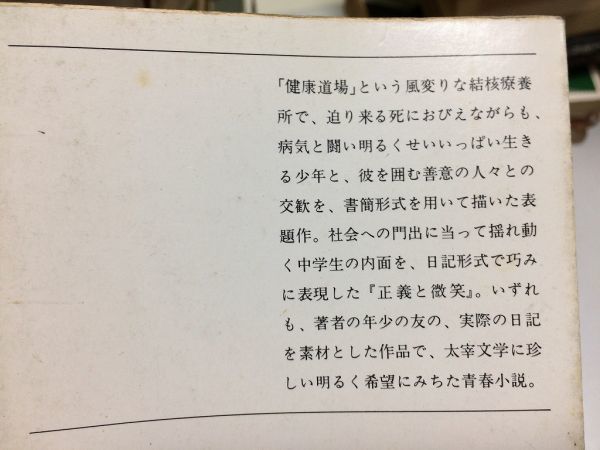 「健康道場」という風変りな結核療養
所で、迫り来る死におびえながらも、
病気と闘い明るくせいいっぱい生き
る少年と、彼を囲む善意の人々との
交歓を、書簡形式を用いて描いた表
題作。社会への門出に当って揺れ動
く中学生の内面を、日記形式で巧み
に表現した『正義と微笑』。いずれ
も、著者の年少の友の、実際の日記
を素材とした作品で、太宰文学に珍
しい明るく希望にみちた青春小説。